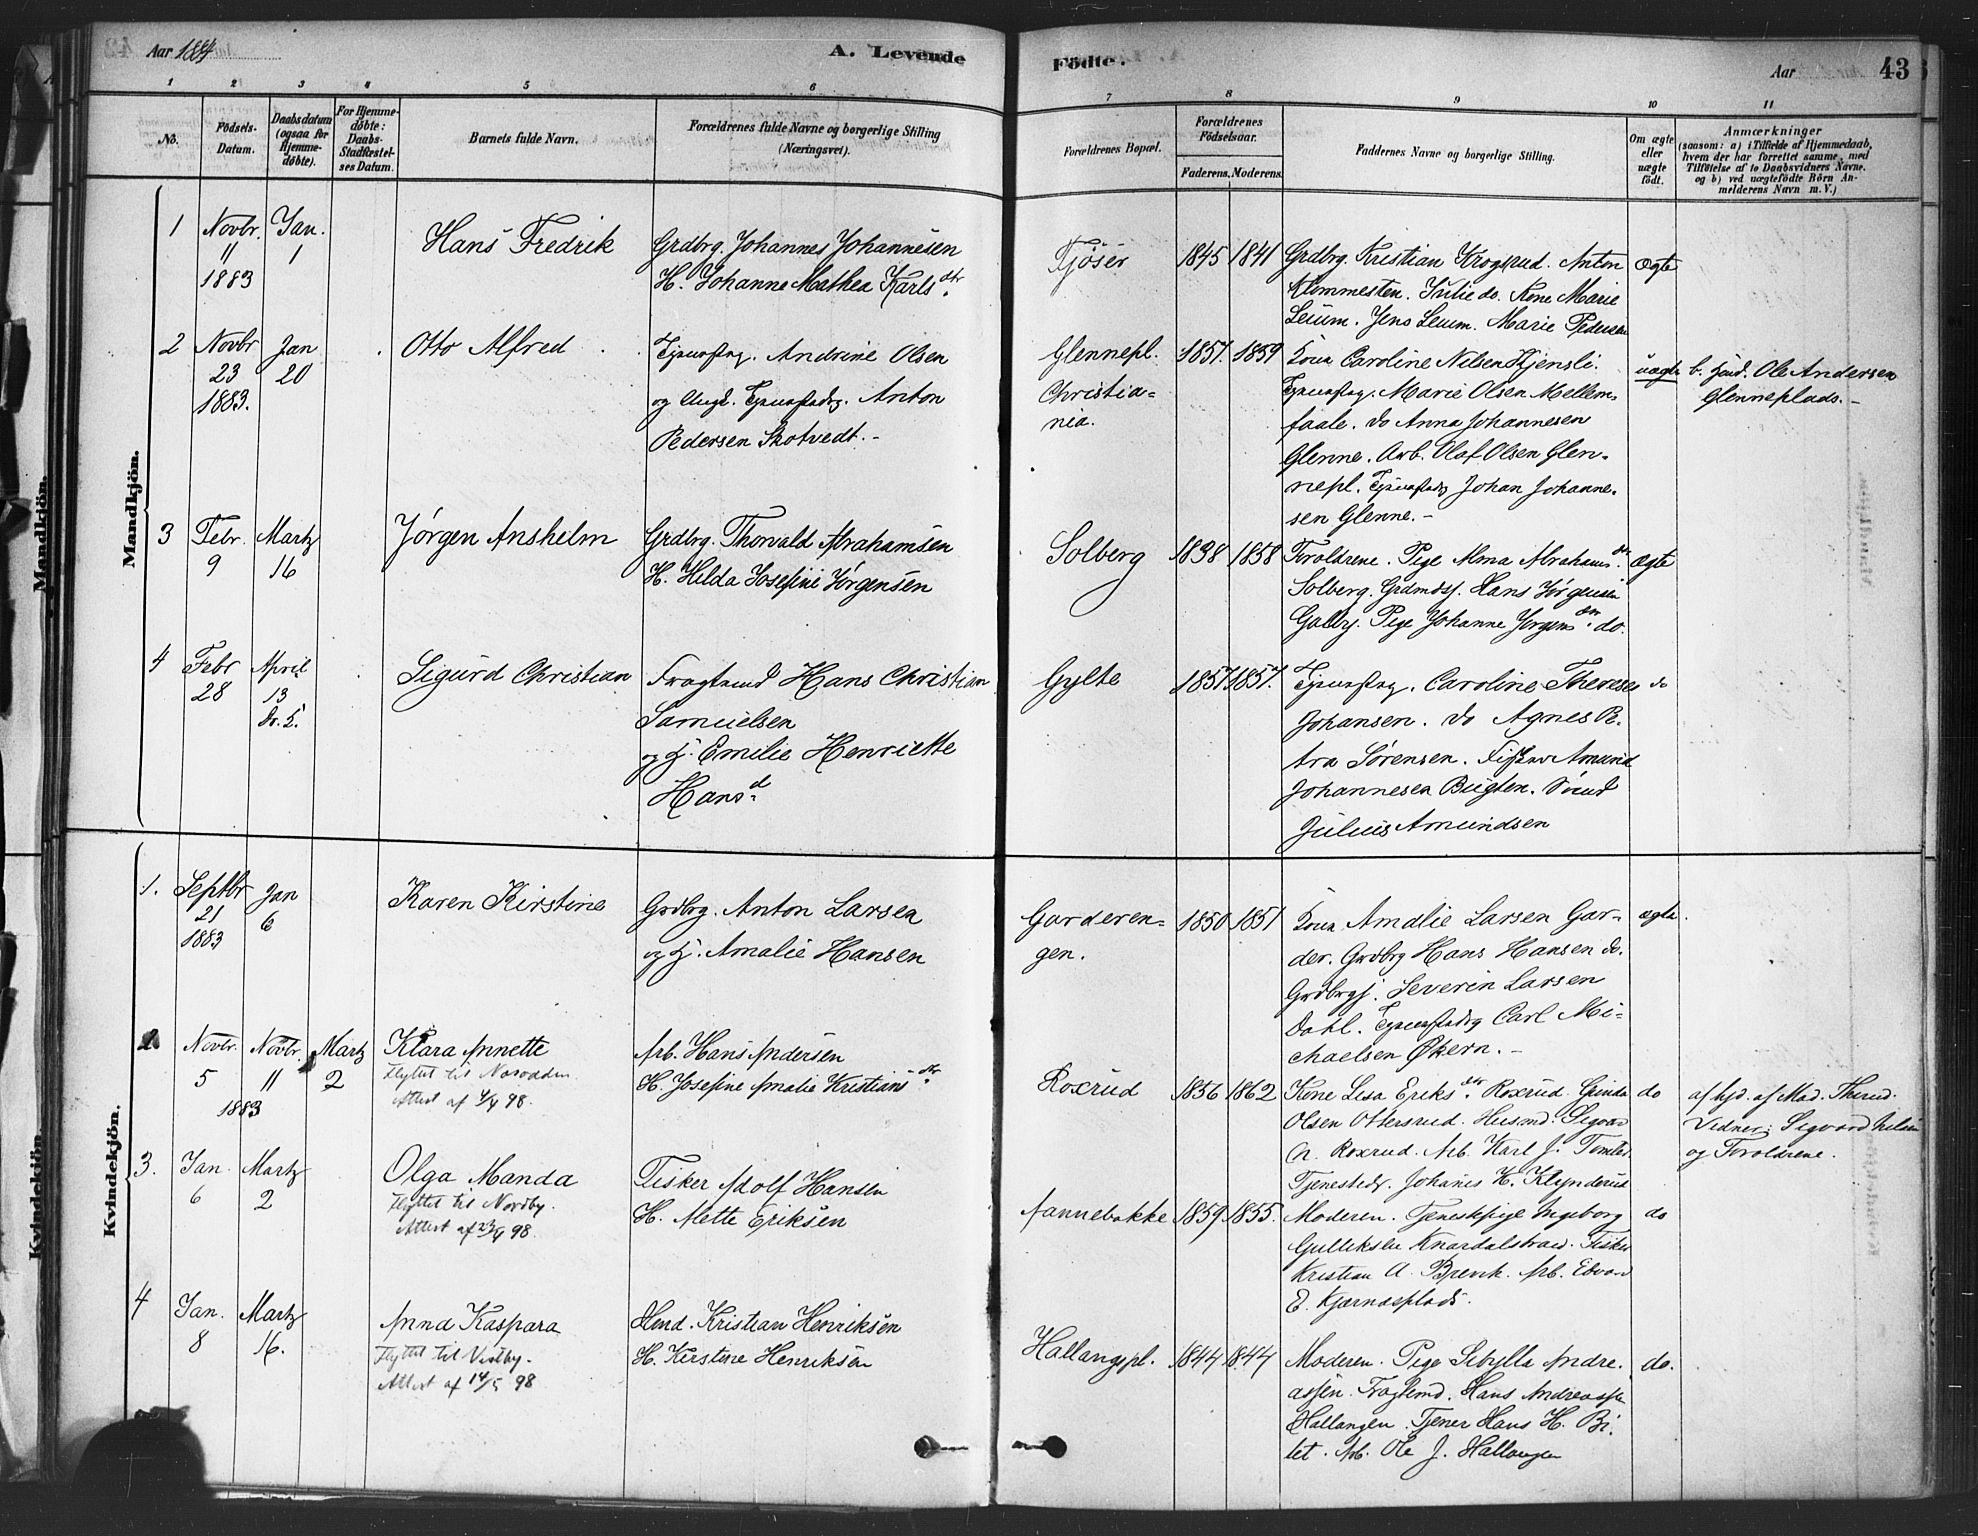 Aar 1884
A. Levende
Födte.
Aar
43
1
2
3
4
5
6
7
8
9
10
11
No.
Födsels-
Datum.
Daabsdatum
(ogsaa for
Hjemme-
døbte).
For Hjemme-
døbte:
Daabs-
Stadfæstel-
ses Datum.
Barnets fulde Navn.
Forældrenes fulde Navne og borgerlige Stilling
(Næringsvei).
Forældrenes Bopæl.
Forældrenes
Födselsaar.
Faderens.
Moderens.
Faddernes Navne og borgerlige Stilling.
Om ægte
eller
uægte
født.
Anmærkninger
(saasom: a) i Tilfælde af Hjemmedaab,
hvem der har forrettet samme, med
Tilföielse af to Daabsvidners Navne.
og b) ved uægtefödte Börn An-
melderens Navn m. V.)
Mandkjön.
1
Novbr.
11
1883
Jan.
1
Hans Fredrik
Grdbrg. Johannes Johannesen
H. Johanne Mathea Karlsdtr.
Tjøser
1845
1841
Grdbrg. Kristian Krogsrud. Anton
Klommesten. Julie do. Kone Marie
Leium. Jens Leium. Marie Pedersen
ægte
2
Novbr
23
1883.
Jan
20
Otto Alfred
Andrine Olsen
og Ungk. Anton
Pedersen Skotvedt.
Glennepl.
Christia-
nia.
1857.
1859
Kone Caroline Nilsen Hjensli.
Marie Olsen Mellem-
faale. do Anna Johannesen
Glenne. Arb. Olaf Olsen Glen-
nepl. Johan Johanne-
sen Glenne.-
uægte
b. Ole Andersen
Glenneplads.-
3
Febr.
9
Martz
16
Jørgen Anshelm
Grdbrg. Thorvald Abrahamsen
H. Hilda Josefine Jørgensen
Solberg
1838
1858
Foroldrene. Pige Alma Abrahamsdtr.
Solberg. Grdmdsf. Hans Jørgensen
Galby. Pige Johanne Jørgensdtr. do.
ægte
4
Febr
28
April
13
Sigurd Christian
Fragtemd Hans Christian
Samuelsen
og H. Emilie Henriette
Hansd.
Gylte
1857
1857.
Caroline Therese
Johansen. do Agnes Pe-
tra Sørensen. Fisker Amund
Johannesen Bugten.
Julius Amundsen
do
Kvindekjön.
1.
Septbr
21
1883
Jan
6
Karen Kirstine
Grdbrg. Anton Larsen
og H. Amalie Hansen
Garderen-
gen.
1850
1851
Kone Amalie Larsen Gar-
der. Grdbrg Hans Hansen do.
Severin Larsen
Dahl. Carl Mi-
chaelsen Økern.-
ægte
2
Novbr.
5
Novbr.
11
1883
Martz
2
Klara Annette
Flyttet til Nesodden
Attest af 4/4 98.
Arb. Hans Andersen
H. Josefine Amalie Kristiansdtr.
Roxrud
1856
1862
Kone Lisa Eriksdtr. Roxrud. Gunda
Olsen Ottersrud. Husmd. Sigvar
N. Roxrud. Arb. Karl J. Tomter
Tjenestedr. Johanes K. Klynderud
do
af hjd. af Mad. Therud.
Vidner: Sigvard Nilsen
og Foroldrene.
3.
Jan.
6
Martz
2
Olga Manda
Flyttet til Nordby.
Attest af 23/4 98.
Fisker Adolf Hansen
H. Mette Eriksen
Nannebakke
1859
1855.
Moderen. Tjenestepige Ingeborg
Gulliksen Knardalstrand. Fisker
Kristian A. Brevik. Arb. Edvard
E. Kjærnæsplads.
do
4
Jan.
8
Martz
16.
Anna Kaspara
Flyttet til Vestby.
Attest af 14/5 98
Hmd. Kristian Henriksen
H. Kirstine Henriksen
Hallangspl.
1844
1844
Moderen. Pige Sibylla Andre-
assen. Fragtemd. Hans Andreassen
Hallangen. Tjener Hans H. Bi-
let. Arb. Ole J. Hallangen
do.